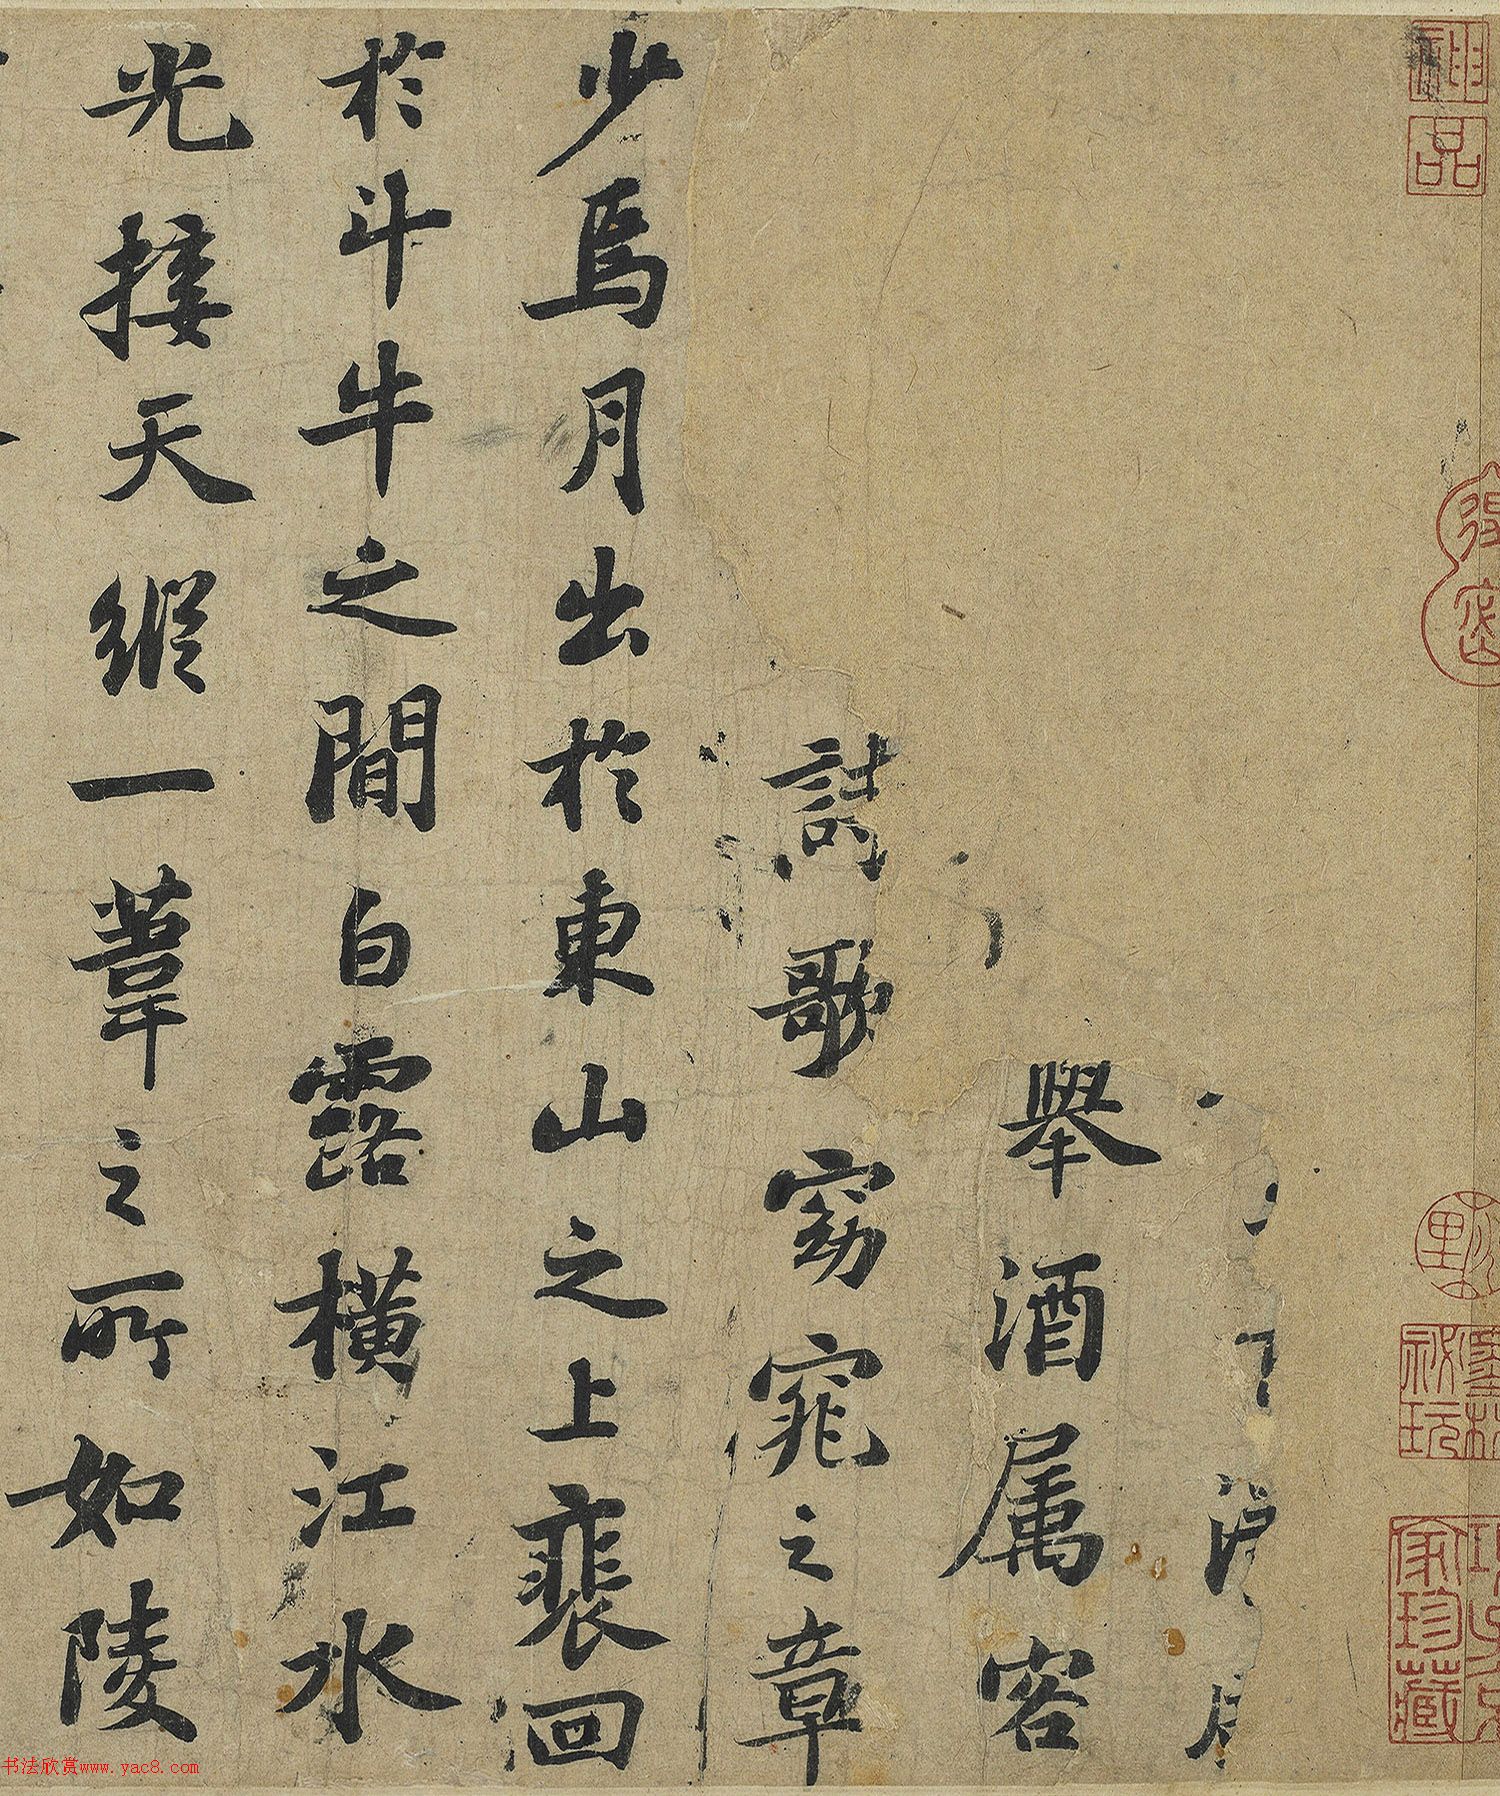 舉酒属客
詩歌窈窕之章
少焉月出於東山之上裴回
於斗牛之間白露橫江水
光接天縱一葦之所如陵
神品
家珍藏
书法欣赏www.yac8.com